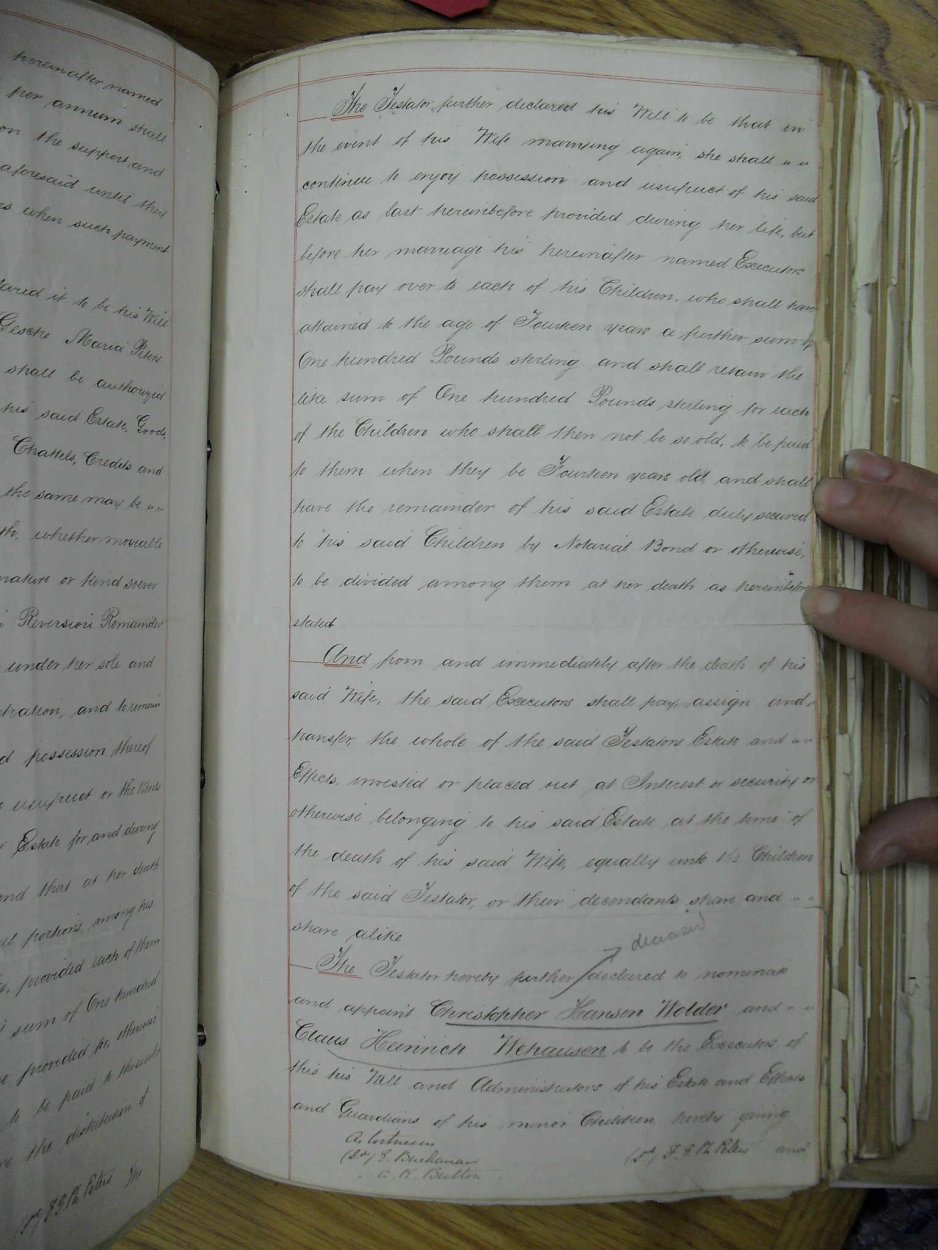 hereinafter named
per annum shall
on the support and
aforesaid until they
when such payment
it to be his Will
Gesche Maria Peters
shall be authorized
his said Estate, Goods,
Chattels, Credits and
the same may be
whether movable
nature or kind soever
Reversion Remainder
under her sole and
and to remain
possession thereof
usufruct or the
Estate for and during
and that at her death
portions, among his
provided each of them
sum of One hundred
provided for,
to be paid to them
the distribution of
F. G. Ph. Peters The
The Testator further declared his Will to be that in
the event of his Wife marrying again, she shall „ „
continue to enjoy possession and usufruct of his said
Estate as last hereinbefore provided during her life, but
before her marriage his hereinafter named Executors
shall pay over to each of his Children, who shall have
attained to the age of Fourteen years a further sum of
One hundred Pounds sterling and shall retain the
like sum of One hundred Pounds sterling for each
of the Children who shall then not be so old, to be paid
to them when they be Fourteen years old, and shall
have the remainder of his said Estate duly secured
to his said Children by Notarial Bond or otherwise,
to be divided among them at her death as hereinbefore
stated
And from and immediately after the death of his
said Wife, the said Executors shall pay, assign and
transfer the whole of the said Testators Estate and „ „
Effects, invested or placed out at Interest or security or
otherwise belonging to his said Estate at the time of
the death of his said Wife, equally unto the Children
of the said Testator, or their decendants share and „ „
share alike
deceased
The Testator hereby further declared to nominate
and appoint Christopher Hansen Wolder and „ „
Claus Heinrich Wehausen to be the Executors of
this his Will and Administrators of his Estate and Effects
and Guardians of his minor Children hereby giving
As witnesses
(sd) E. Buchanan (sd) F. G. Ph. Peters and
„ A. K. Butler